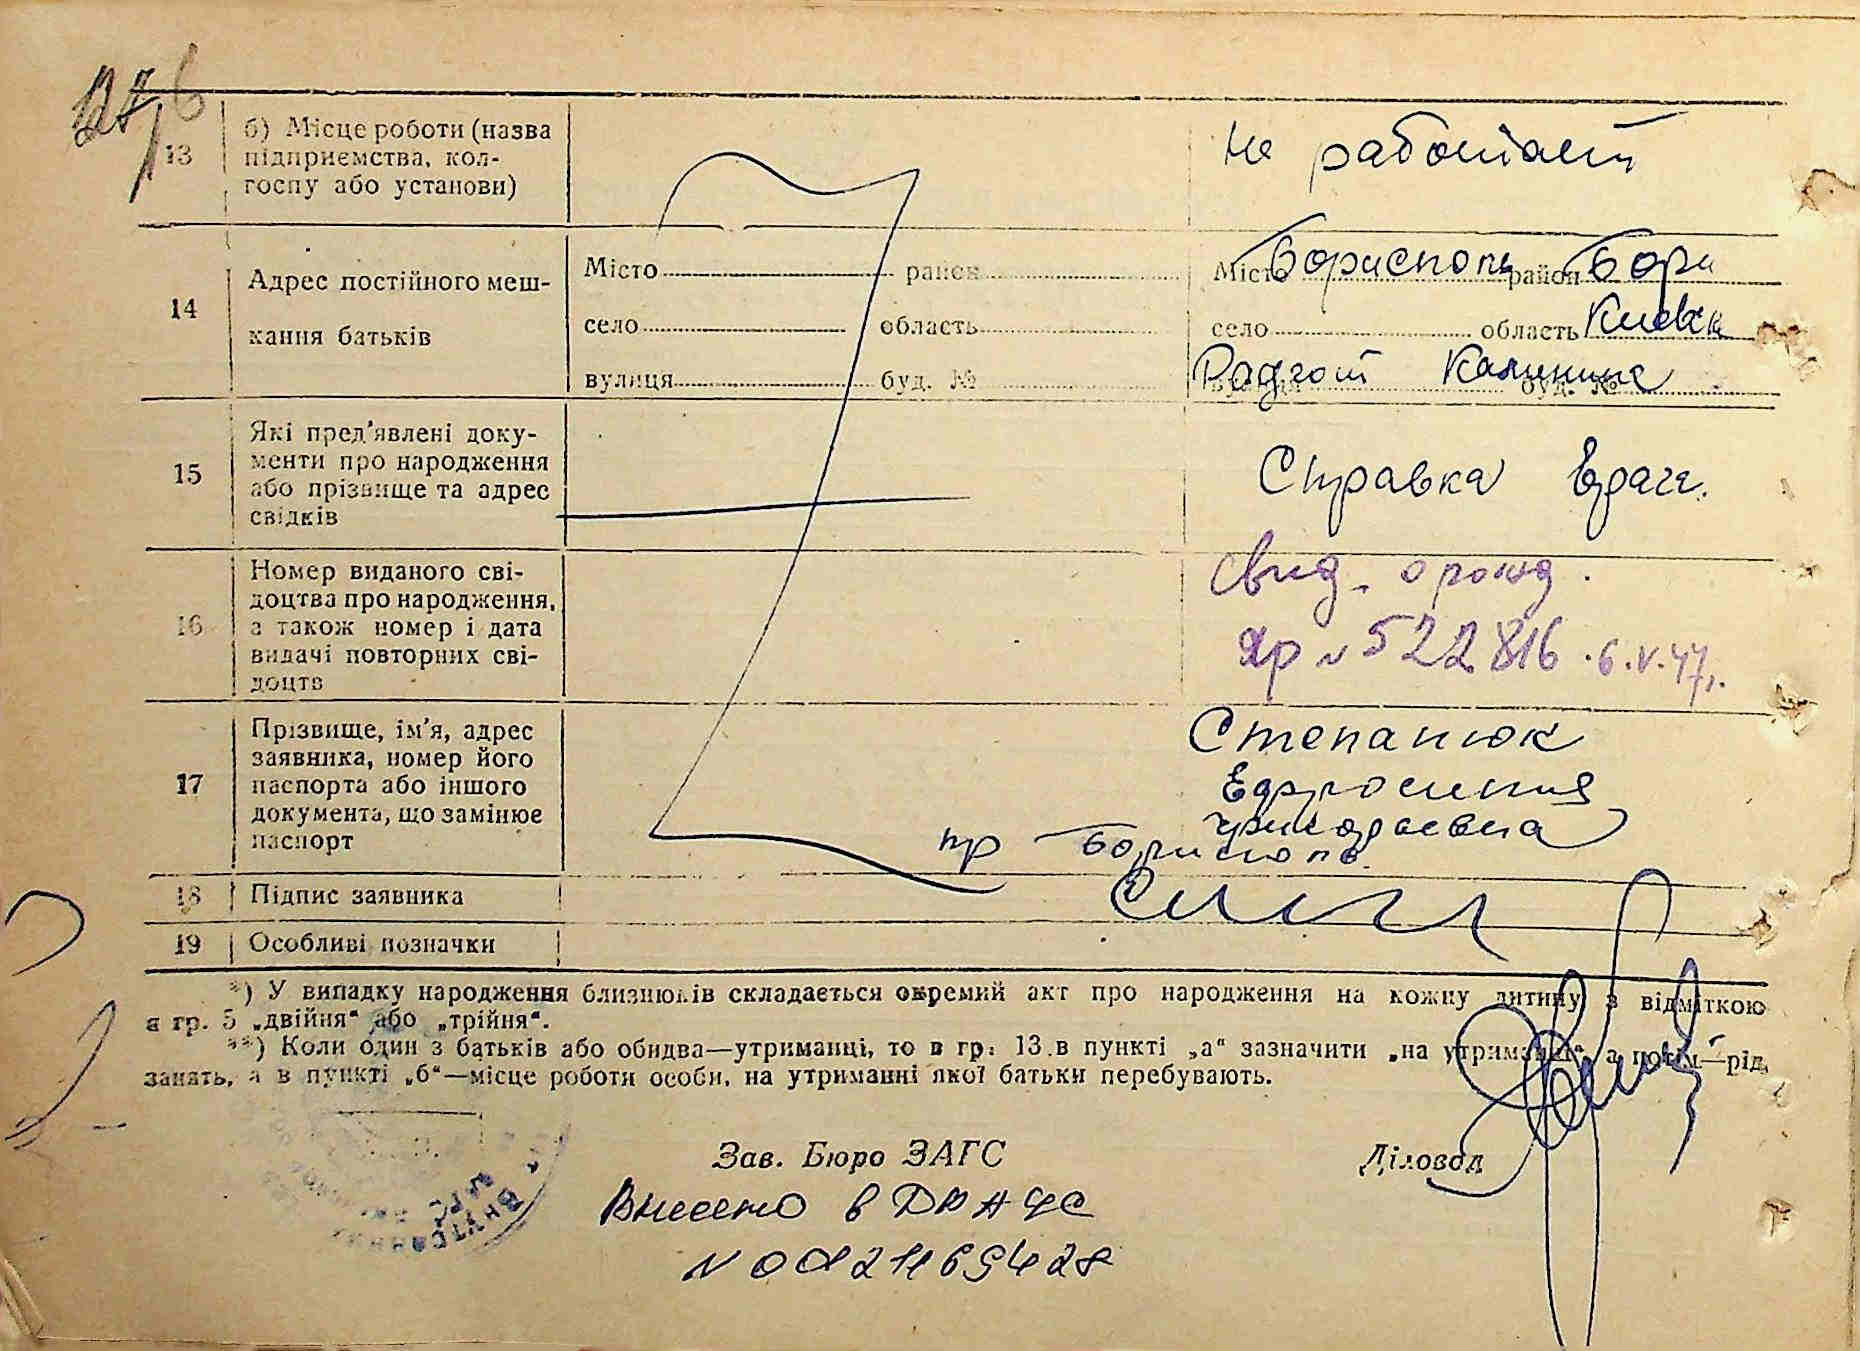 127 6
13 б) Місце роботи (назва підприємства, кол-
госпу або установи)
Не работает
14 Адрес постійного меш-
кання батьків
Місто район
село область
вулиця буд. №
Місто Борисполь район Бори
село область Киевск
вулиця Калинина буд. №
15 Які пред'явлені доку-
менти про народження
або прізвище та адрес
свідків
Справка врача.
16 Номер виданого сві-
доцтва про народження,
а також номер і дата
видачі повторних сві-
доцтв
Свид. о рожд.
ЯР № 522816. 6.V.47г.
17 Прізвище, ім'я, адрес
заявника, номер його
паспорта або іншого
документа, що замінює
паспорт
Степанюк
Ефросиния
пр Борисполь
18 Підпис заявника
19 Особливі позначки
*) У випадку народження близнюків складається окремий акт про народження на кожну дитину з відміткою
в гр. 5 „двійня“ або „трійня“.
**) Коли один з батьків або обидва—утриманці, то в гр. 13 в пункті „а“ зазначити „на утриманні“, а потім—рід
занять, а в пункті „б“—місце роботи особи, на утриманні якої батьки перебувають.
Зав. Бюро ЗАГС
Діловод
Внесено в ДРАЦС
N 00121169428